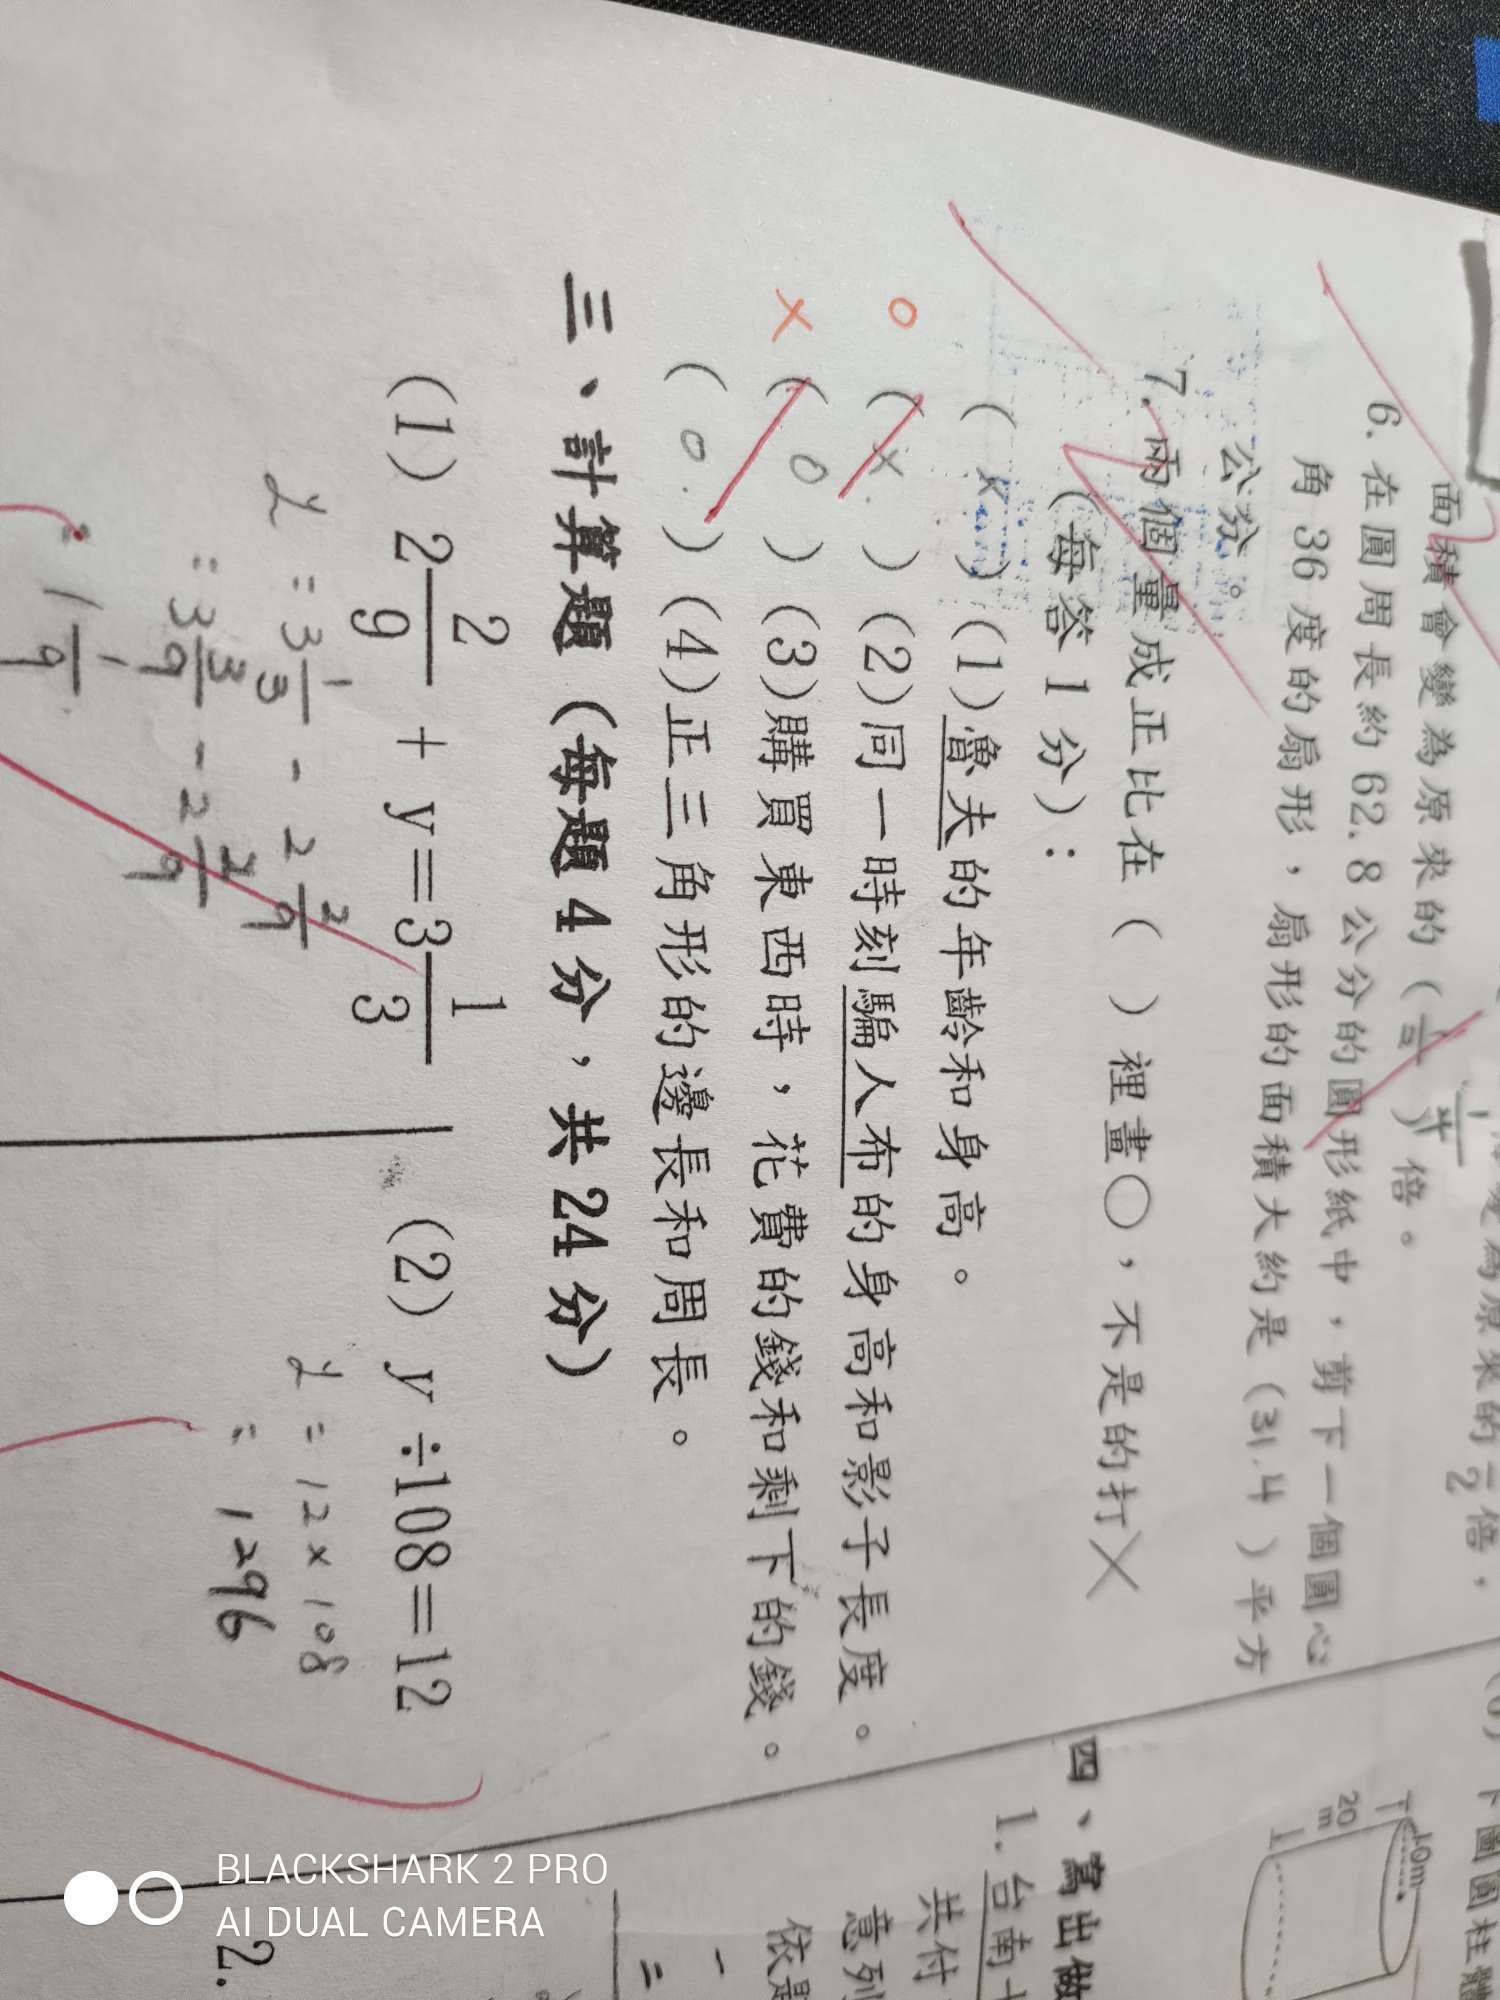 面積會變為原來的( )倍。
6. 在圓周長約62.8公分的圓形紙中，剪下一個圓心
角36度的扇形，扇形的面積大約是(31.4)平方
公分。
7. 兩個量成正比在( )裡畫○，不是的打╳
(每答1分)：
(x)(1)魯夫的年齡和身高。
o (x.)(2)同一時刻騙人布的身高和影子長度。
x (o)(3)購買東西時，花費的錢和剩下的錢。
(o.)(4)正三角形的邊長和周長。
三、計算題(每題4分，共24分)
(1) 2 2/9 + y = 3 1/3
y = 3 1/3 - 2 2/9
= 3 3/9 - 2 2/9
= 1 1/9
(2) y ÷108=12
y = 12 × 108
= 1296
下圖圓柱體
10m
20m
四、寫出做
1. 台南
共付
意列
依是
2.
BLACKSHARK 2 PRO
AI DUAL CAMERA